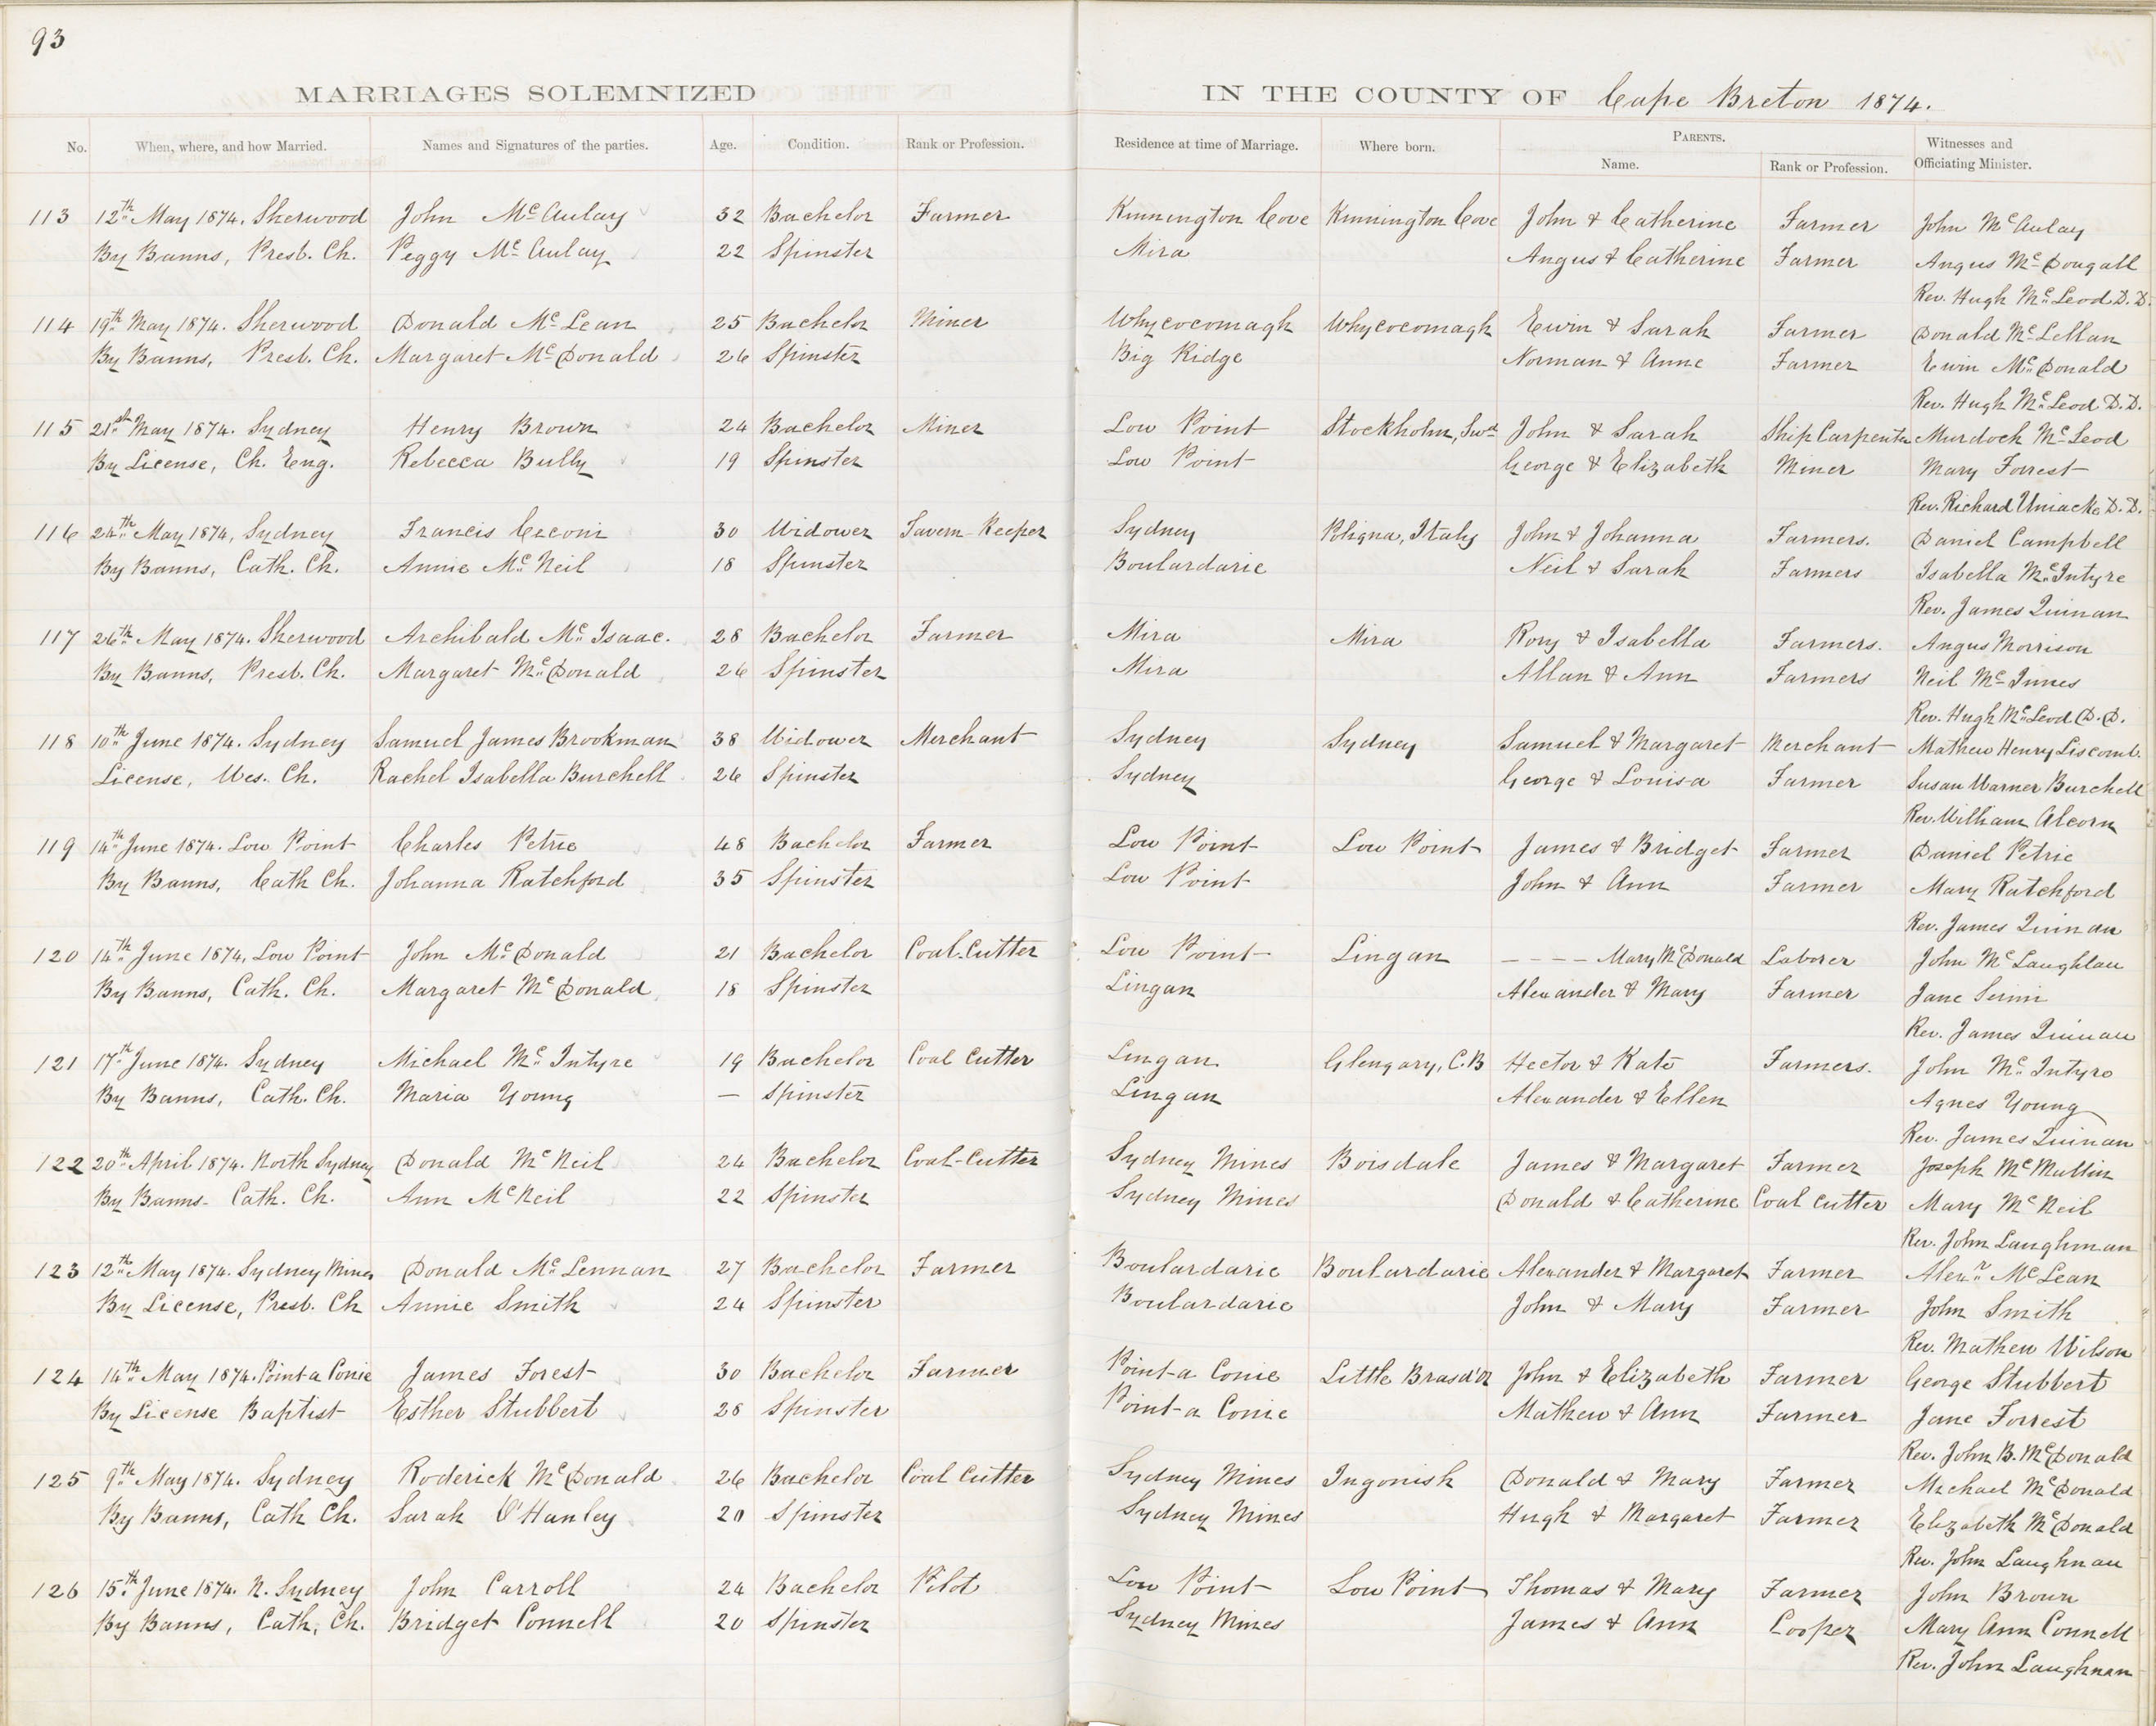 93
MARRIAGES SOLEMNIZED IN THE COUNTY OF Cape Breton 1874.
No. When, where, and how Married. Names and Signatures of the parties. Age. Condition. Rank or Profession. Residence at time of Marriage. Where born. PARENTS. Name. Rank or Profession. Witnesses and Officiating Minister.
113 12th May 1874. Sherwood John McAulay 32 Bachelor Farmer Kinnington Cove Kinnington Cove John & Catherine Farmer John McAulay
By Banns, Presb. Ch. Peggy McAulay 22 Spinster Mira Angus & Catherine Farmer Angus McDougall
Rev. Hugh McLeod D.D.
114 19th May 1874. Sherwood Donald McLean 25 Bachelor Miner Whycocomagh Whycocomagh Ewin & Sarah Farmer Donald McLellan
By Banns, Presb. Ch. Margaret McDonald 26 Spinster Big Ridge Norman & Anne Farmer Ewin McDonald
Rev. Hugh McLeod D.D.
115 21st May 1874. Sydney Henry Brown 24 Bachelor Miner Low Point Stockholm, Swd John & Sarah Ship Carpenter Murdoch McLeod
By License, Ch. Eng. Rebecca Bully 19 Spinster Low Point George & Elizabeth Miner Mary Forrest
Rev. Richard Uniacke D.D.
116 24th May 1874, Sydney Francis Ceconi 30 Widower Tavern Keeper Sydney Italy John & Johanna Farmers. Daniel Campbell
By Banns, Cath. Ch. Annie McNeil 18 Spinster Boulardarie Neil & Sarah Farmers Isabella McIntyre
Rev. James Quinan
117 26th May 1874. Sherwood Archibald McIsaac. 28 Bachelor Farmer Mira Mira Rory & Isabella Farmers. Angus Morrison
By Banns, Presb. Ch. Margaret McDonald 26 Spinster Mira Allan & Ann Farmers Neil McInnes
Rev. Hugh McLeod D.D.
118 10th June 1874. Sydney Samuel James Brookman 38 Widower Merchant Sydney Sydney Samuel & Margaret Merchant Mathew Henry Liscomb.
License, Wes. Ch. Rachel Isabella Burchell 26 Spinster Sydney George & Louisa Farmer Susan Warner Burchell
Rev. William Alcorn
119 14th June 1874. Low Point Charles Petrie 48 Bachelor Farmer Low Point Low Point James & Bridget Farmer Daniel Petrie
By Banns, Cath Ch. Johanna Ratchford 35 Spinster Low Point John & Ann Farmer Mary Ratchford
Rev. James Quinan
120 14th June 1874, Low Point John McDonald 21 Bachelor Coal-Cutter Low Point Lingan - - - - Mary McDonald Laborer John McLaughlan
By Banns, Cath. Ch. Margaret McDonald 18 Spinster Lingan Alexander & Mary Farmer Jane
Rev. James Quinan
121 17th June 1874. Sydney Michael McIntyre 19 Bachelor Coal Cutter Lingan Glengary, C.B Hector & Kate Farmers. John McIntyre
By Banns, Cath. Ch. Maria Young — Spinster Lingan Alexander & Ellen Agnes Young
Rev. James Quinan
122 20th April 1874. North Sydney Donald McNeil 24 Bachelor Coal-Cutter Sydney Mines Boisdale James & Margaret Farmer Joseph McMullin
By Banns- Cath. Ch. Ann McNeil 22 Spinster Sydney Mines Donald & Catherine Coal Cutter Mary McNeil
Rev. John Laughman
123 12th May 1874. Sydney Mines Donald McLennan 27 Bachelor Farmer Boulardarie Boulardarie Alexander & Margaret Farmer Alexr McLean
By License, Presb. Ch Annie Smith 24 Spinster Boulardarie John & Mary Farmer John Smith
Rev. Mathew Wilson
124 14th May 1874. Point a Conie James Forest 30 Bachelor Farmer Point a Conie Little Brasd'Or John & Elizabeth Farmer George Stubbert
By License Baptist Esther Stubbert 28 Spinster Point a Conie Mathew & Ann Farmer Jane Forrest
Rev. John B. McDonald
125 9th May 1874. Sydney Roderick McDonald 26 Bachelor Coal Cutter Sydney Mines Ingonish Donald & Mary Farmer Michael McDonald
By Banns, Cath Ch. Sarah O'Hanley 20 Spinster Sydney Mines Hugh & Margaret Farmer Elizabeth McDonald
Rev. John Laughnan
126 15th June 1874. N. Sydney John Carroll 24 Bachelor Pilot Low Point Low Point Thomas & Mary Farmer John Brown
By Banns, Cath. Ch. Bridget Connell 20 Spinster Sydney Mines James & Ann Cooper Mary Ann Connell
Rev. John Laughnan